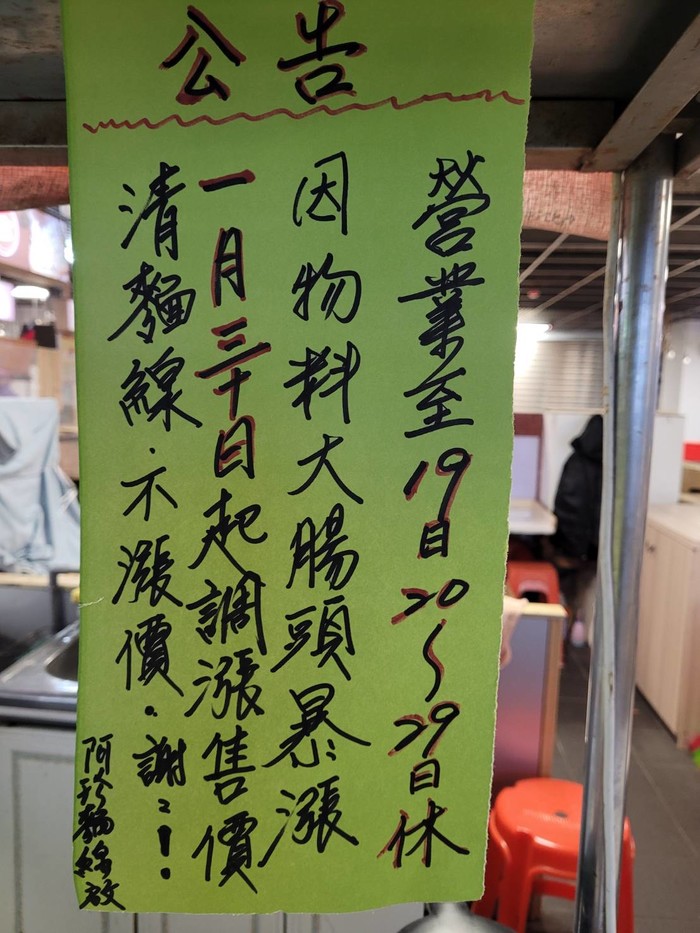 公告
營業至19日20~29日休
因物料大腸頭暴漲
一月三十日起調漲售價
清麵線.不漲價.謝:!
阿珍麵線啟